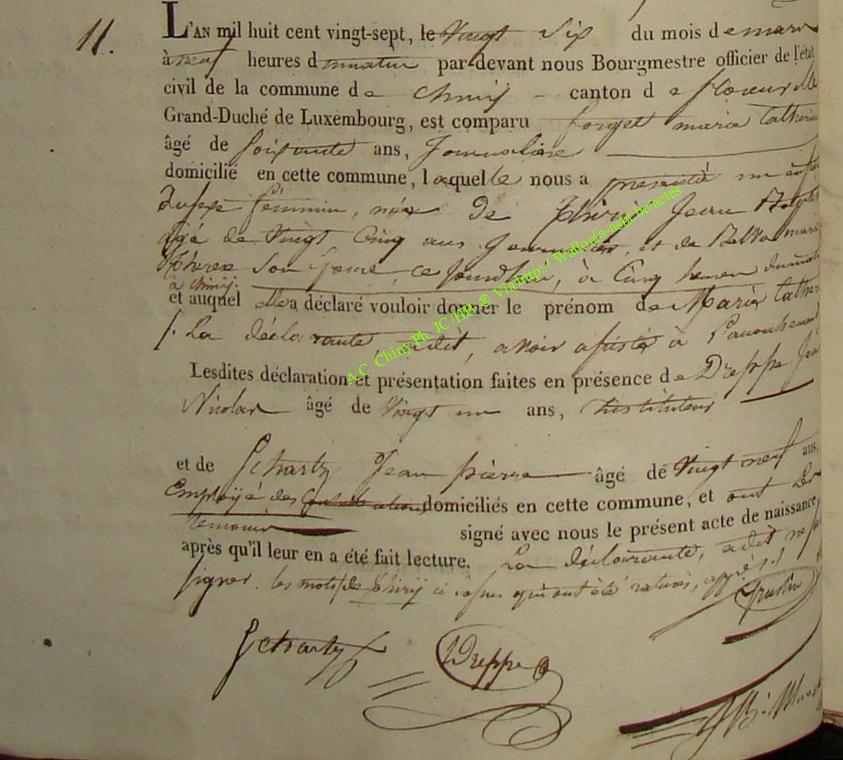 11.
L'AN mil huit cent vingt-sept, le Vingt Six du mois de mars
à neuf heures du matin par-devant nous Bourgmestre officier de l'état
civil de la commune de Chiny canton de florenville
Grand-Duché de Luxembourg, est comparu forget marie Catherine
âgé de soixante ans, Journalière
domicilié en cette commune, laquelle nous a présenté un enfant
du sexe féminin, née De Jean Baptiste
âgé de Vingt Cinq ans et de marie
Thérèse Son épouse, ce Jourdhui, à Cinq heures du matin
à Chiny.
et auquel elle a déclaré vouloir donner le prénom de Marie Catherine
/. La déclarante a dit, avoir assisté à l'accouchement
Lesdites déclaration et présentation faites en présence de Dreppe Jean
Nicolas âgé de Vingt un ans, instituteur
et de Scharty Jean pierre âgé de Vingt neuf ans,
Employé des domiciliés en cette commune, et ont les
temoins signé avec nous le présent acte de naissance
après qu'il leur en a été fait lecture. La déclarante, a dit ne
signer. les mots de qui ont été
Scharty Dreppe
A.C Chiny Ph. JC HB ® Vic http:// Wallonia-asbl.be-actes